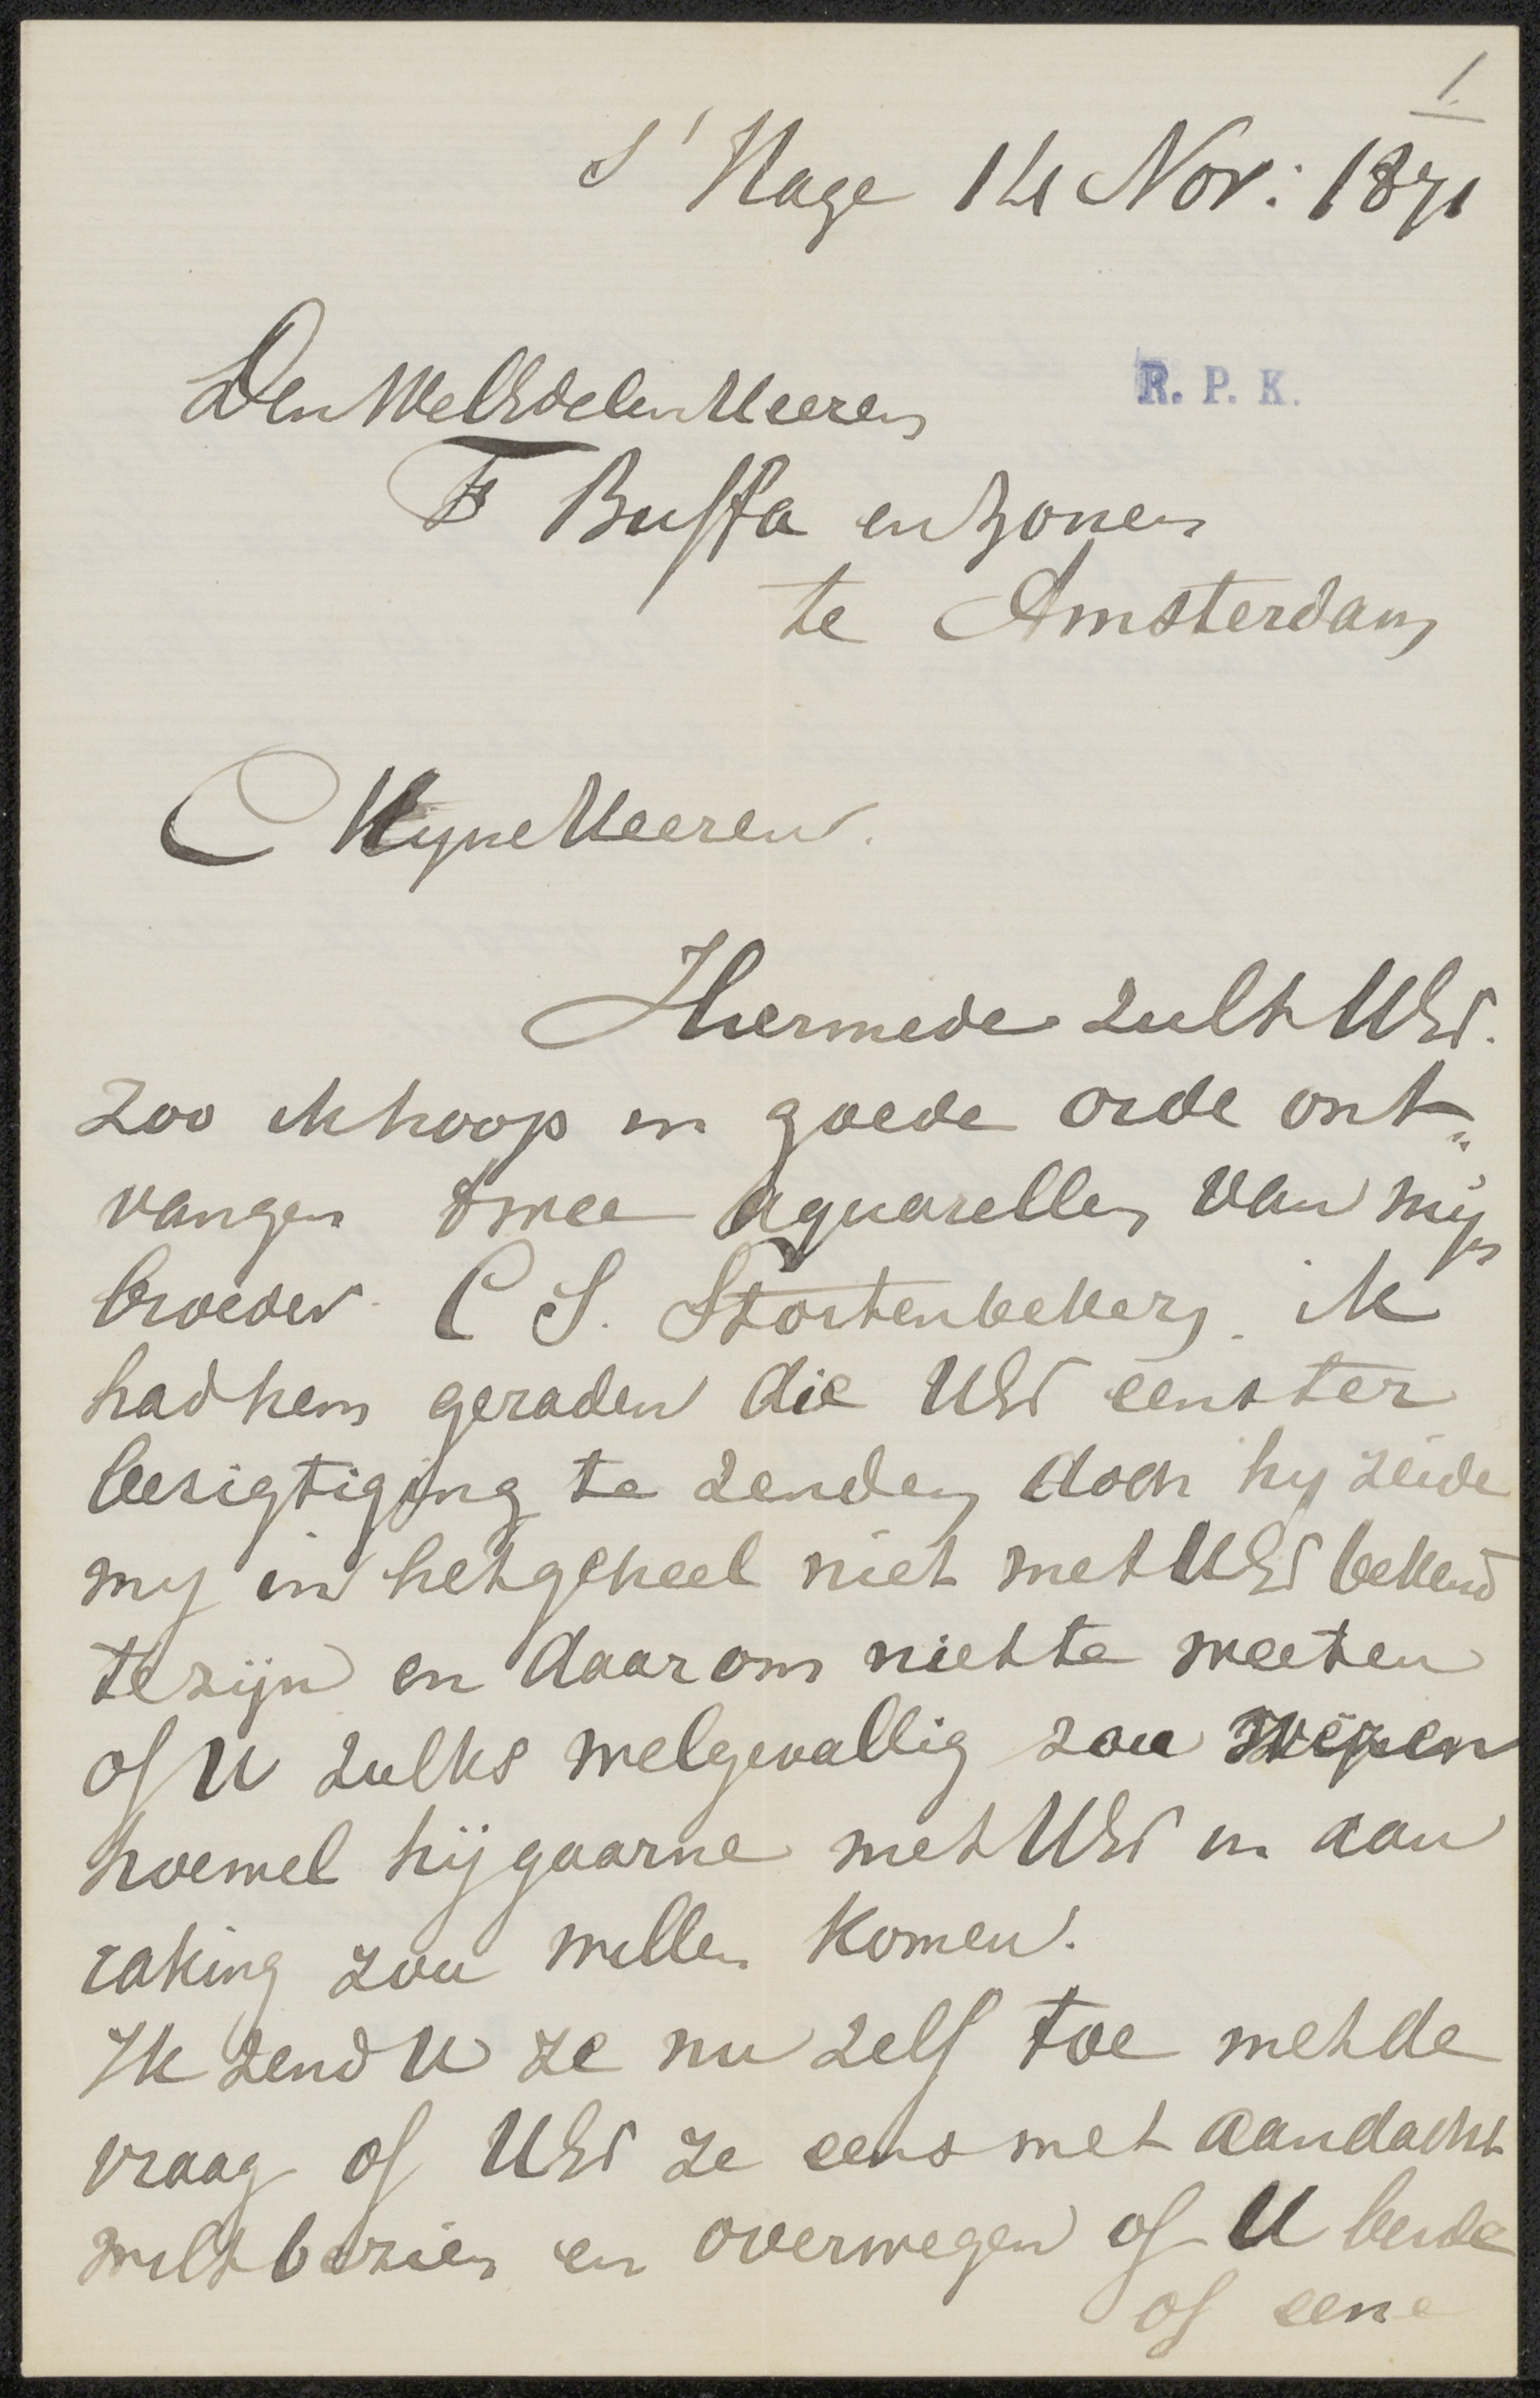 1.
S' Hage 14 Nov: 1871
Den WelEdelen Heeren
R. P. K.
Fs Buffa en Zonen
te Amsterdam
Myne Heeren.
Hiermede zult UEd.
zoo ik hoop in goede orde ont„
vangen twee aquarellen van mijn
broeder C S. Stortenbekers. ik
had hem geraden die UEd eens ter
besigtiging te zenden doch hy zeide
my in het geheel niet met UEd bekend
te zijn en daarom niet te weeten
of U zulks welgevallig zou wezen
hoewel hij gaarne met UEd in aan
raking zou willen komen.
Ik zend U ze nu zelf toe met de
vraag of UEd ze eens met aandacht
wilt bezien en overwegen of U beide
of eene